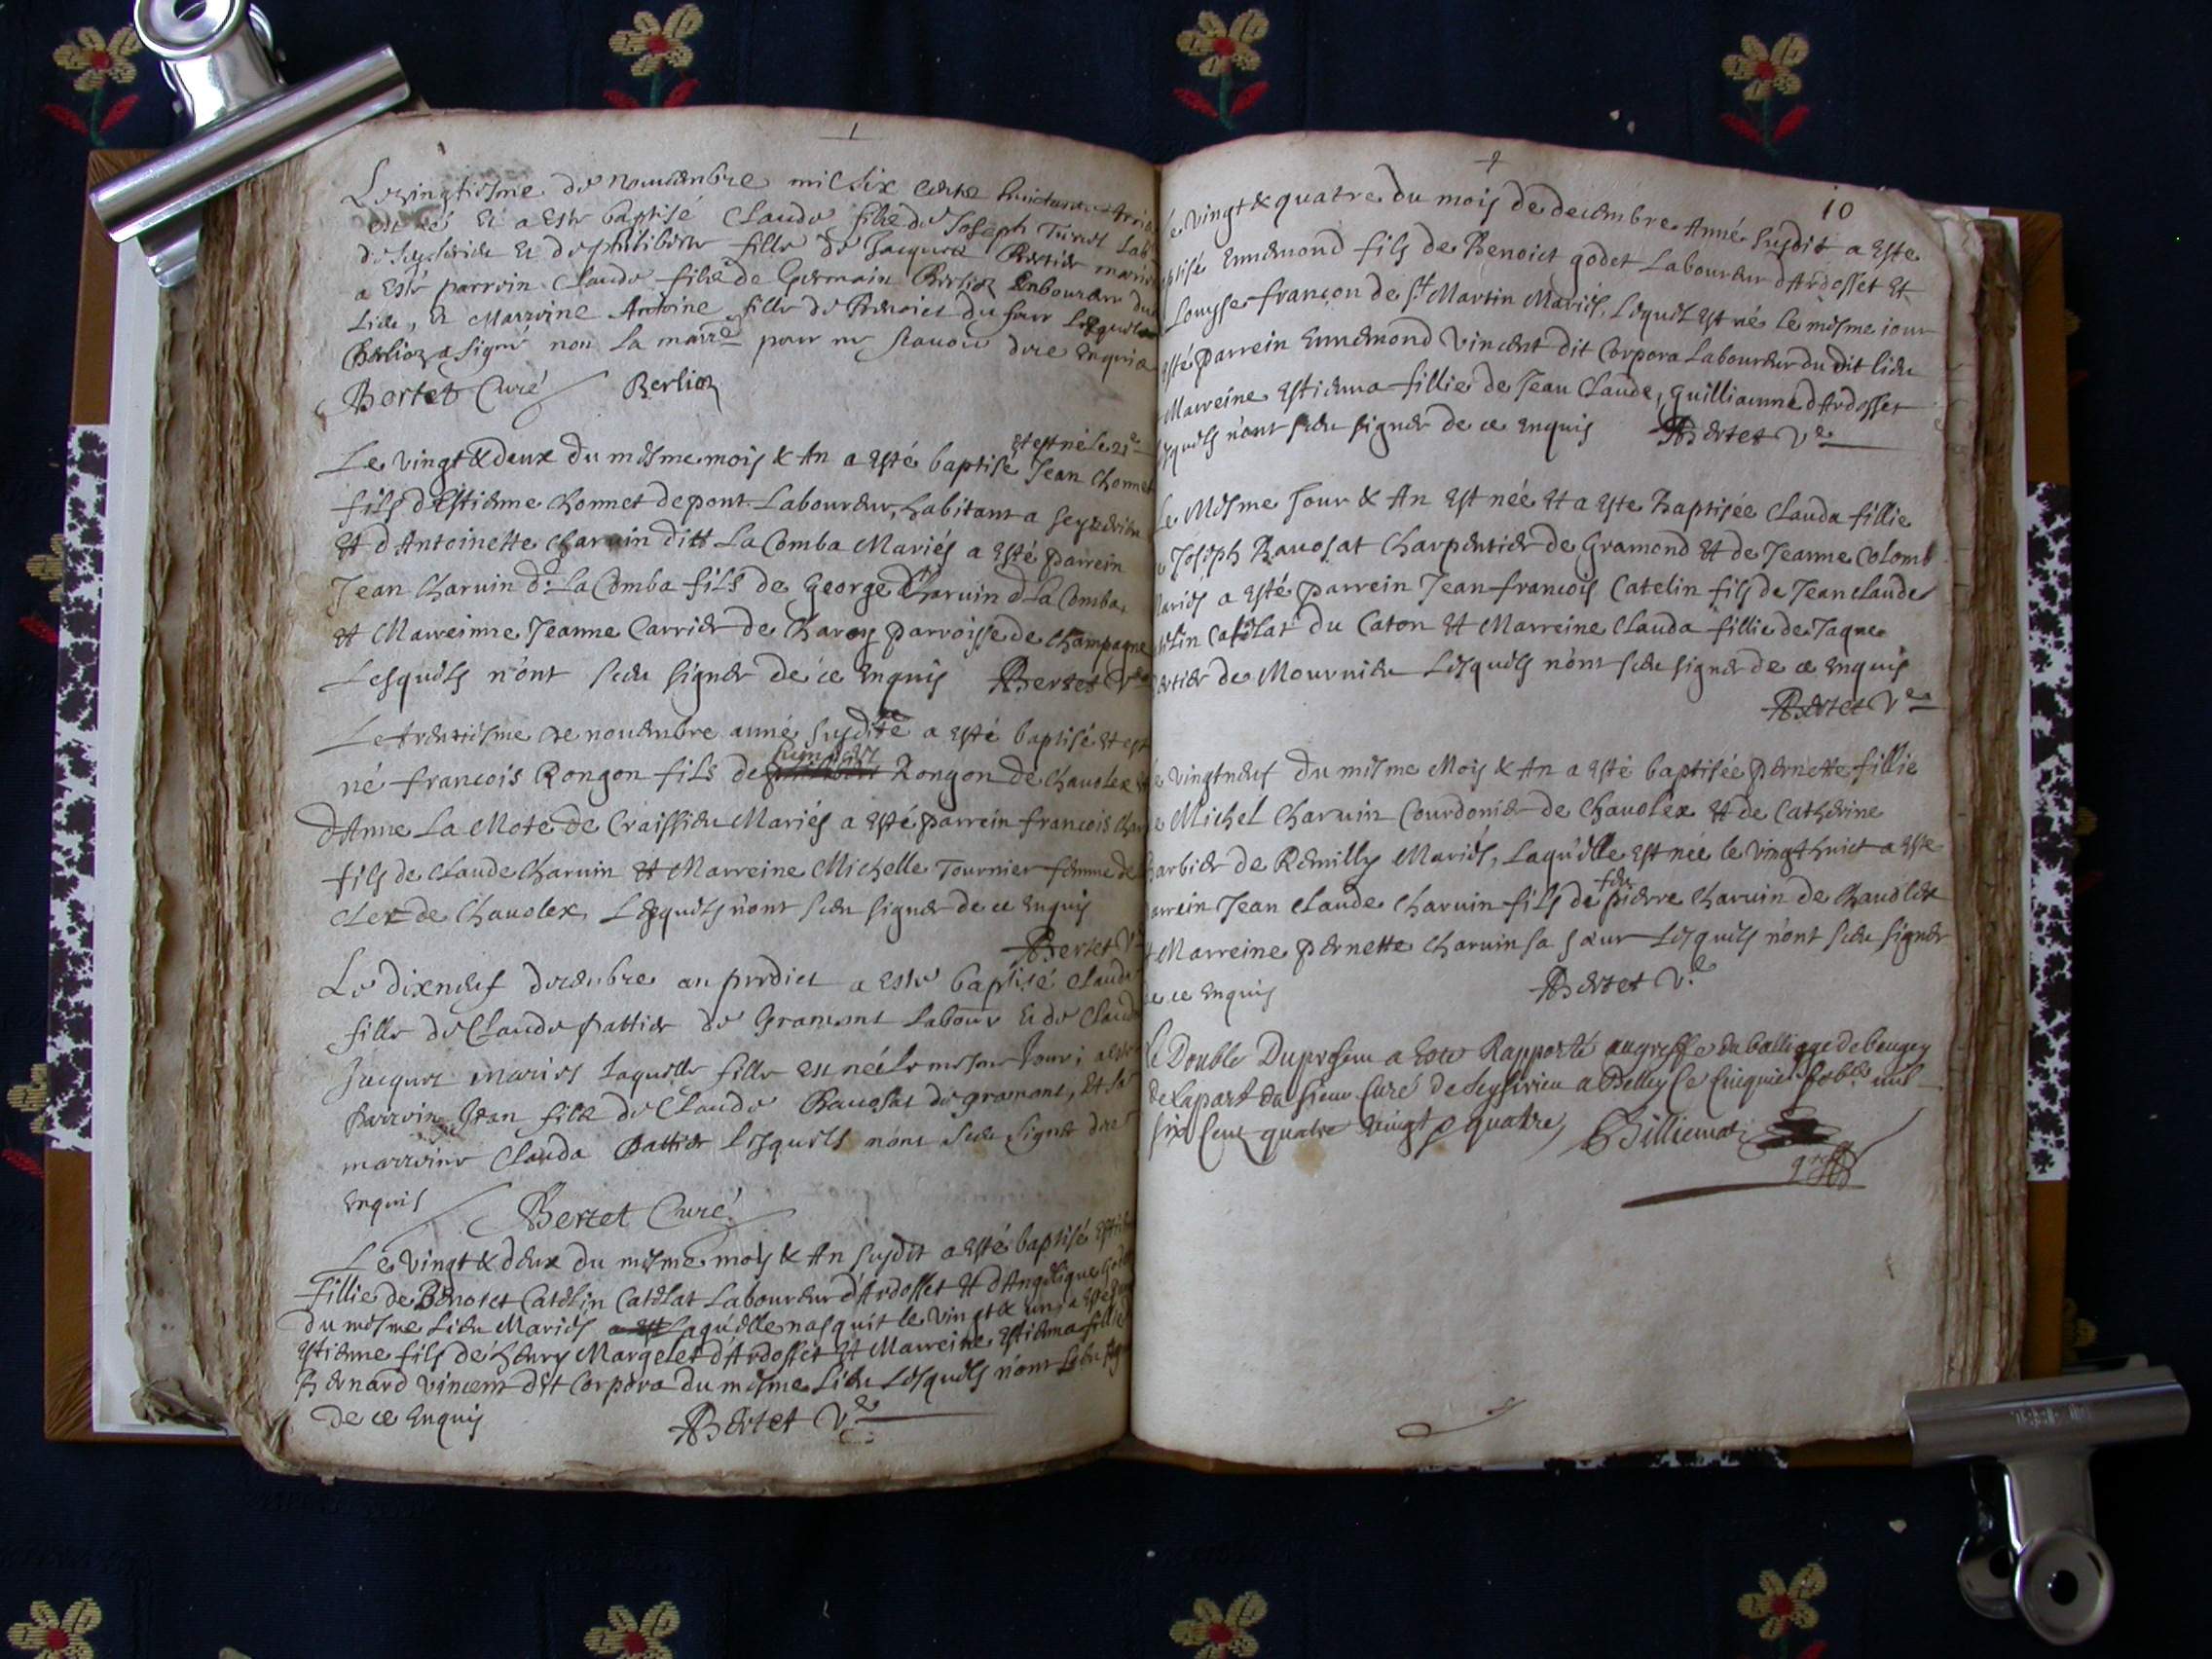 Le vingtiesme de nouembre mil six cents huictante trois
est né et a este baptisé Claude filz de Joseph
de Seyssirieu et de philiberte fille de Jacques Bertier mariés
a esté parrein Claude filz de Germain Berlioz Laboureur du
Lieu, et Marreine Antoine fille de Benoict du four Lesquels
Berlioz a signé non la marre pour ne scauoir de ce enquis
Bertet Curé Berlioz
et est né le 21e
Le vingt & deux du mesme mois & An a esté baptisé Jean Chonnet
fils d'Estienne Chonnet de pont Laboureur, habitant a Seyzerieu
Et d'Antoinette Charuin ditt La Comba Mariés a esté parrein
Jean Charuin d: La Comba fils de George Charuin d La Comba,
et Marreinne Jeanne Carrier de Charoy parroisse de Champagne
Lesquels n'ont sceu signer de ce enquis Bertet
Le trentiesme de nouembre anné susditte a esté baptisé et est
né francois Rongon fils de Rongon de Chauolex et
d'Anne La Mote de Craissieu Mariés a esté parrein francois
fils de Claude Charuin et Marreine Michelle Tournier femme de
Cler de Chauolex, Lesquels n'ont sceu signer de ce enquis
Bertet V
Le dixneuf decembre an predict a este baptisé Claude
fille de Claude pattier de Gramont Labour et de Claude
Jacques mariés Laquelle fille est née le mesme Jour; a esté
parrein Jean filz de Claude Rauosat de gramont, et la
marreine Clauda Pattier Lesquels n'ont sceu signer de ce
enquis Bertet Curé
Le vingt & deux du mesme mois & An susdit a esté baptisé
fillie de Benoict Catelin Catelat Laboureur d'Ardosset et d'Angelique
du mesme Lieu Mariés a est Laquelle nasquit le vingt & un; a esté
Estienne fils de henry Margelet d'Ardosset et Marreine Estienna fillie
Bernard Vincent dit Corpora du mesme Lieu Lesquels n'ont sceu
de ce enquis Bertet Vre
10
vingt & quatre du mois de decembre Anné susdit a este
Ennemond fils de Benoict godet Laboureur d'Ardosset et
Louyse françon de St Martin Mariés, Lequel est né le mesme iour
esté parrein Ennemond Vincent dit Corpora Laboureur du dit lieu
Marreine Estienna fillie de Jean Claude, guillaume d'Ardosset
n'ont sceu signer de ce enquis Bertet Vre
Le Mesme Jour & An est née et a este baptisée Clauda fillie
Joseph Rauosat Charpentier de Gramond et de Jeanne Colomb
Mariés a esté parrein Jean francois Catelin fils de Jean claude
Catelat du Caton et Marreine Clauda fillie de Jaque
de Mournieu Lesquels n'ont sceu signer de ce enquis
Bertet Vre
vingtneuf du mesme Mois & An a esté baptisée pernette fillie
Michel Charuin Courdonier de Chauolex et de Catherine
Barbier de Remilly Mariés, Laquelle est née le vingt huict a este
parrein Jean Claude Charuin fils de feu pierre Charuin de Chauolex
Marreine pernette Charuin sa soeur Lesquels n'ont sceu signer
de ce enquis Bertet Vre
Le Double Du present a este Rapporté au greffe du balliage de beugey
de la part du sieur Curé de Seyssirieu a Belley Ce cinquieme
six Cent quatre vingt quatre Billiemat